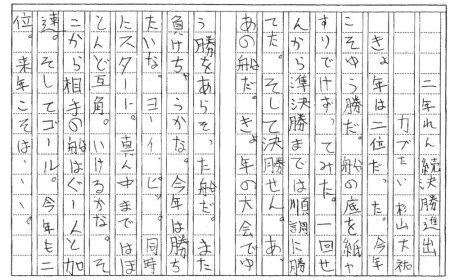 二年れん続決勝進出
カブたい 杉山大祐
きょ年は二位だった。今年
こそゆう勝だ。船の底を紙や
すりでけずってみた。一回せ
んから準決勝までは順調に勝
てた。そして決勝せん。あ、
あの船だ。きょ年の大会でゆ
う勝をあらそった船だ。また
負けちゃうかな。今年は勝ち
たいな。ヨーイ、ピッ。同時
にスタート。真ん中まではほ
とんど互角。いけるかな。そ
こから相手の船はぐーんと加
速。そしてゴール。今年も二
位。来年こそは・・・。